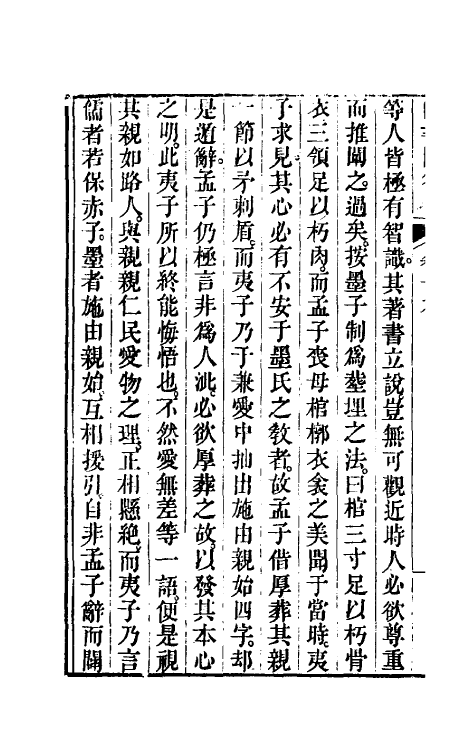 等人皆極有智識。其著書立說。豈無可觀近時人必欲尊重
而推闡之。過矣。按墨子制爲葬埋之法。曰棺三寸足以朽骨
衣三領足以朽肉。而孟子喪母棺槨衣衾之美聞于當時。夷
子求見。其心必有不安于墨氏之敎者。故孟子借厚葬其親
一節以矛刺盾。而夷子乃于兼愛中抽出施由親始四字。却
是遁辭。孟子仍極言非爲人泚。必欲厚葬之故。以發其本心
之明。此夷子所以終能悔悟也。不然愛無差等一語。便是視
其親如路人。與親親仁民愛物之理。正相懸絶。而夷子乃言
儒者若保赤子。墨者施由親始。互相援引。自非孟子辭而闢